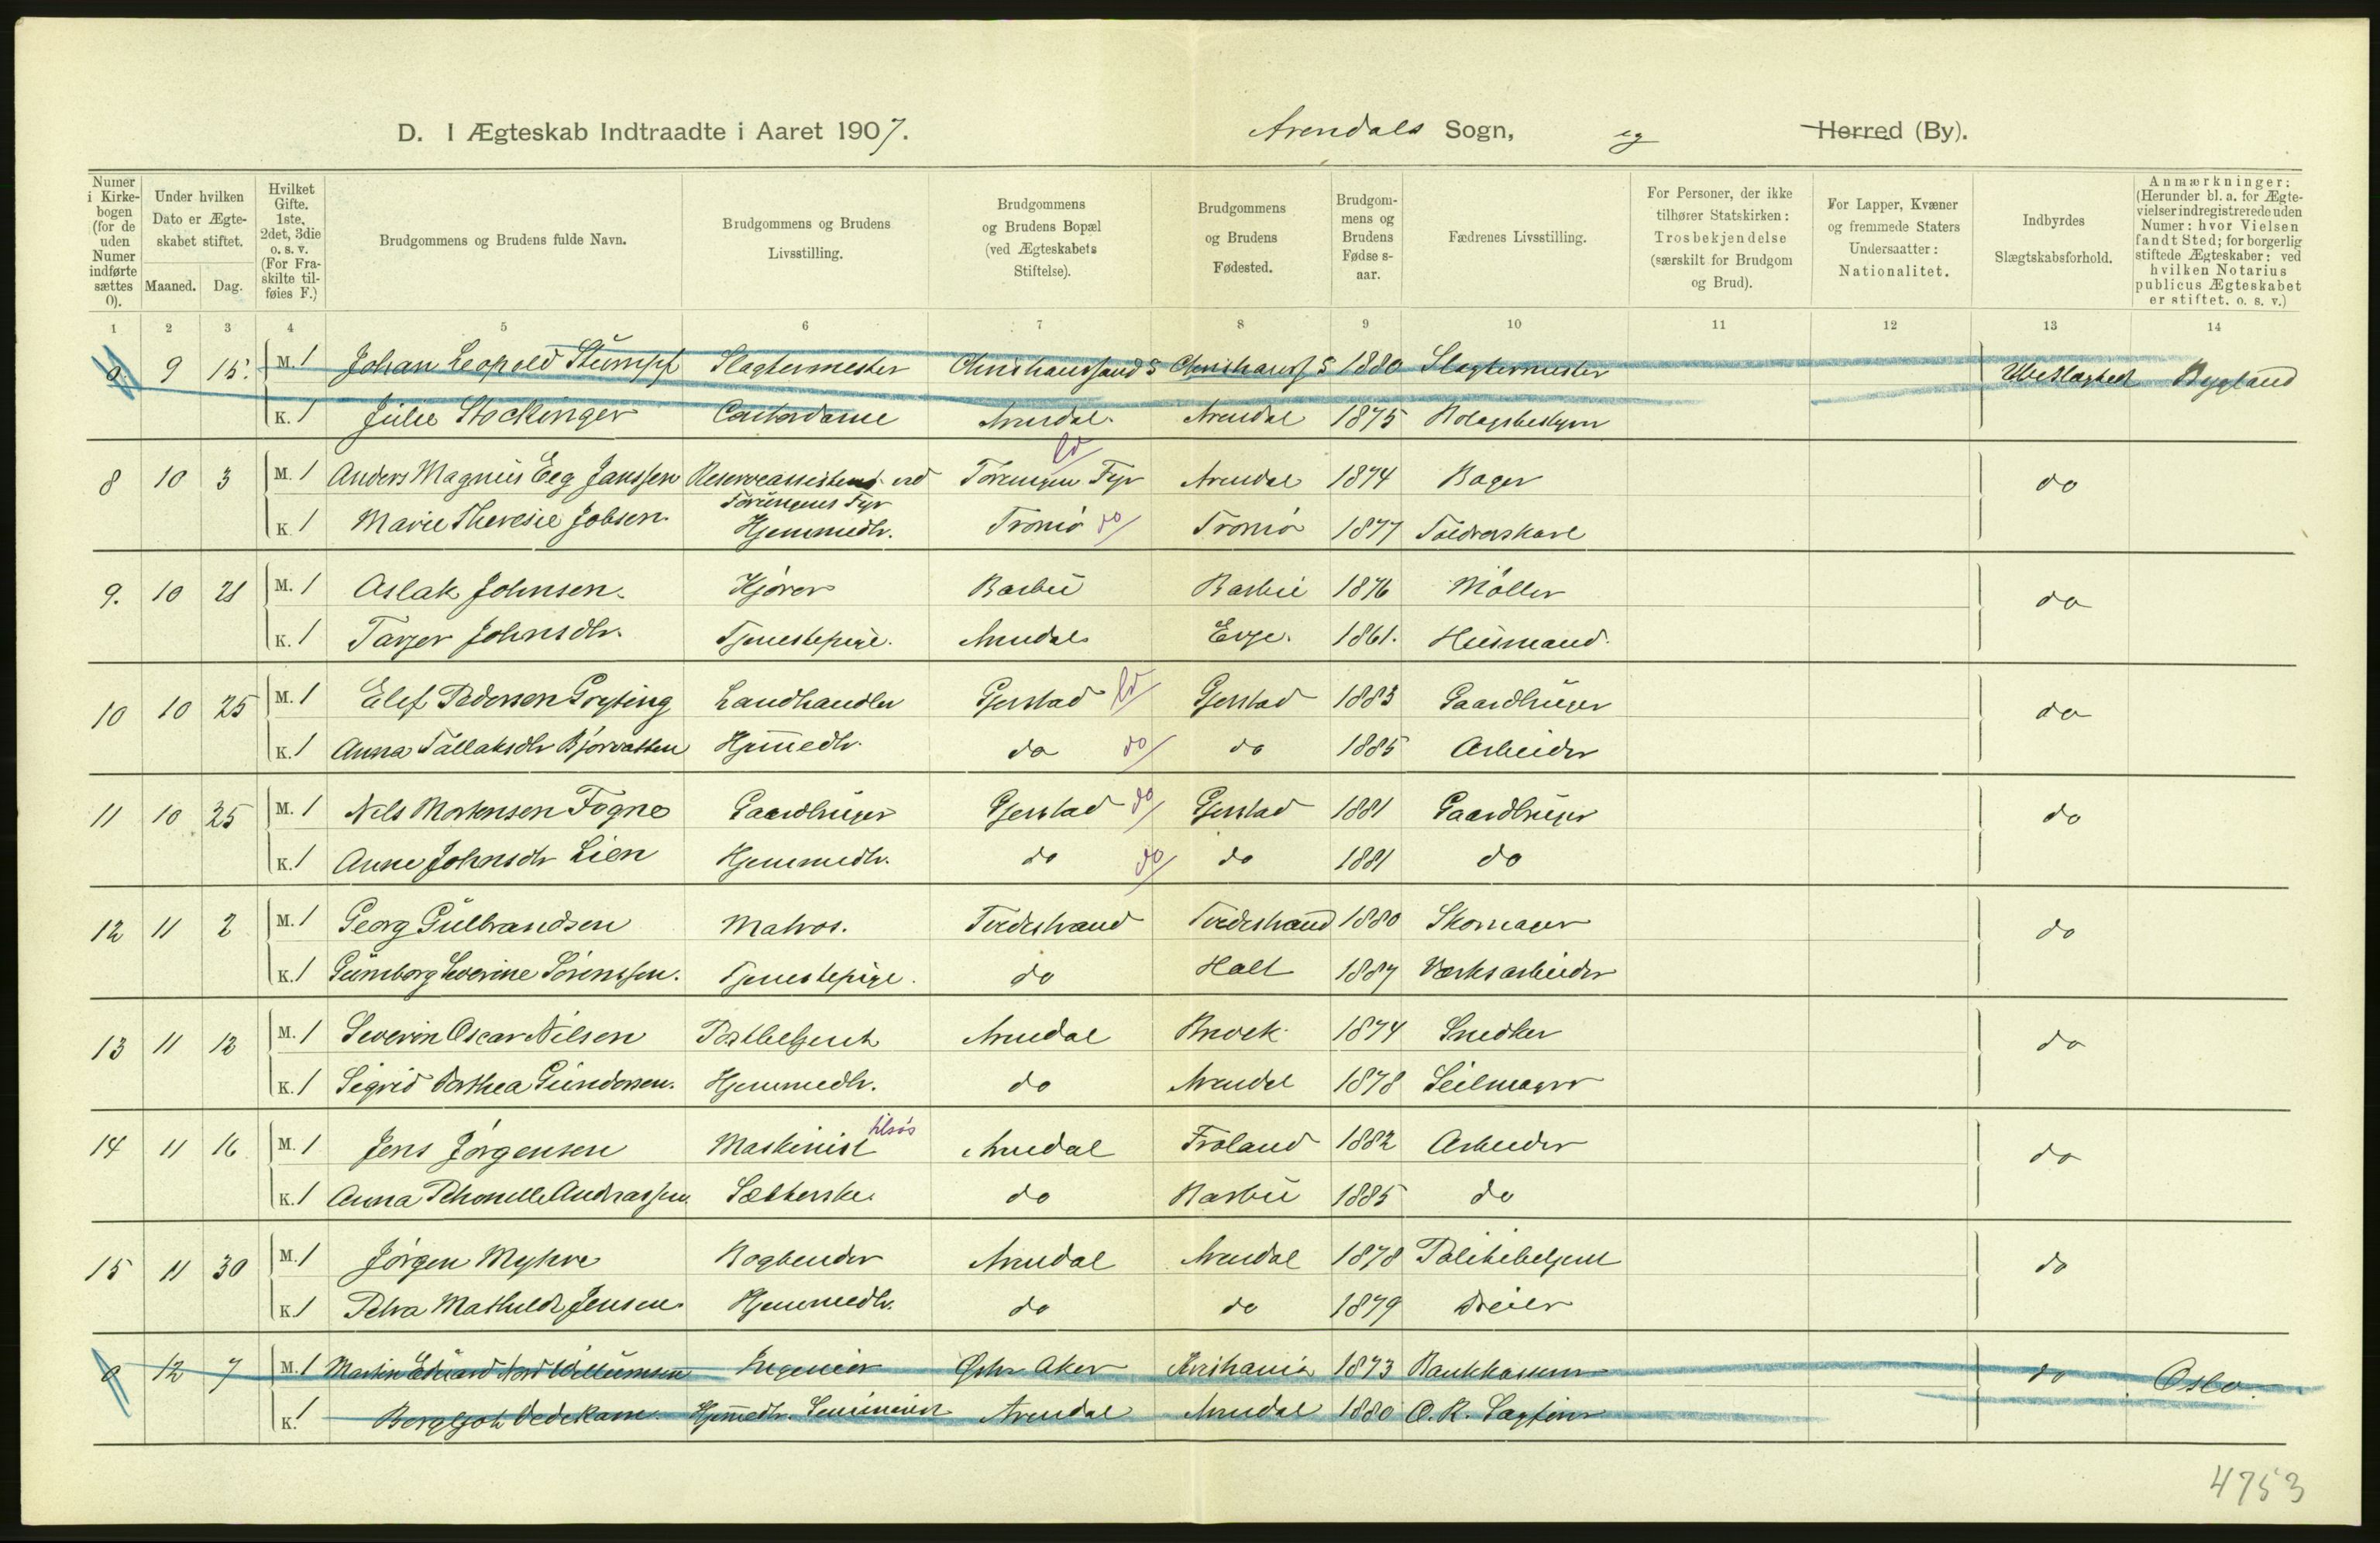 D. I Ægteskab Indtraadte i Aaret 1907. Arendals Sogn, og Herred (By).
Numer i Kirkebogen (for de uden Numer indførte sættes 0).
Under hvilken Dato er Ægteskabet stiftet.
Maaned. Dag.
Hvilket Gifte. 1ste, 2det, 3die o. s. v. (For Fraskilte tilføies F.)
Brudgommens og Brudens fulde Navn.
Brudgommens og Brudens Livsstilling.
Brudgommens og Brudens Bopæl (ved Ægteskabets Stiftelse).
Brudgommens og Brudens Fødested.
Brudgommens og Brudens Fødselsaar.
Fædrenes Livsstilling.
For Personer, der ikke tilhører Statskirken: Trosbekjendelse (særskilt for Brudgom og Brud).
For Lapper, Kvæner og fremmede Staters Undersaatter: Nationalitet.
Indbyrdes Slægtskabsforhold.
Anmærkninger: (Herunder bl. a. for Ægtevielser indregistrerede uden Numer: hvor Vielsen fandt Sted; for borgerlig stiftede Ægteskaber: ved hvilken Notarius publicus Ægteskabet er stiftet. o. s. v.)
1 2 3 4 5 6 7 8 9 10 11 12 13 14
0 9 15. M. 1 Johan Leopold Stumpf Slagtermester Christianssand S Christianss. S 1880 Slagtermester Ubeslægtet Bygland
K. 1 Julie Stockinger Contordame Arendal Arendal 1875 Bolagsbestyrer
8 10 3 M. 1 Anders Magnus Eeg Janssen Reserveassistent ved Torungens Fyr Torungen Fyr Arendal 1874 Bager do
K. 1 Marie Theresie Jobsen Hjemmedtr. Tromø do Tromø 1877 Toldroerskarl
9. 10 21 M. 1 Aslak Johnsen. Kjører Barbu Barbu 1876 Møller do
K. 1 Tarjer Johnsdtr. Tjenestepige. Arendal Evje. 1861. Husmand.
10 10 25 M. 1 Elef Pedersen Gryting Landhandler Gjerstad Gjerstad 1883 Gaardbruger do
K. 1 Anna Tallaksdtr Bjorvatten Hjemmedtr. do do do 1885 Arbeider
11 10 25 M. 1 Nils Mortensen Fogne Gaardbruger Gjerstad do Gjerstad 1881 Gaardbruger do
K. 1 Anne Johnsdtr Lien Hjemmedtr. do do do 1881 do
12 11 2 M. 1 Georg Gulbrandsen Matros. Tvedestrand Tvedestrand 1880 Skomager do
K. 1 Gunborg Severine Sørenssen. Tjenestepige. do Holt 1887 Værksarbeider
13 11 12 M. 1 Severin Oscar Nilsen Postbetjent Arendal Brevik 1874 Snedker do
K. 1 Sigrid Dorthea Gundersen. Hjemmedtr. do Arendal 1878 Seilmager
14 11 16 M. 1 Jens Jørgensen Maskinist tilsøs Arendal Froland 1882 Arbeider do
K. 1 Anna Thomelle Andreassen Sætterske do Barbu 1885 do
15 11 30 M. 1 Jørgen Myhre Bogbinder Arendal Arendal 1878 Politibetjent do
K. 1 Petra Mathilde Jensen Hjemmedtr. do do 1879 Dreier
0 12 7 M. 1 Martin Eduard Willumsen Ingeniør Østre Aker Kristiania 1873 Bankkasserer do Oslo.
K. 1 Bergljot Vedekam Hjemmedtr. Arendal Arendal 1880 O. R. Sagfører
4753